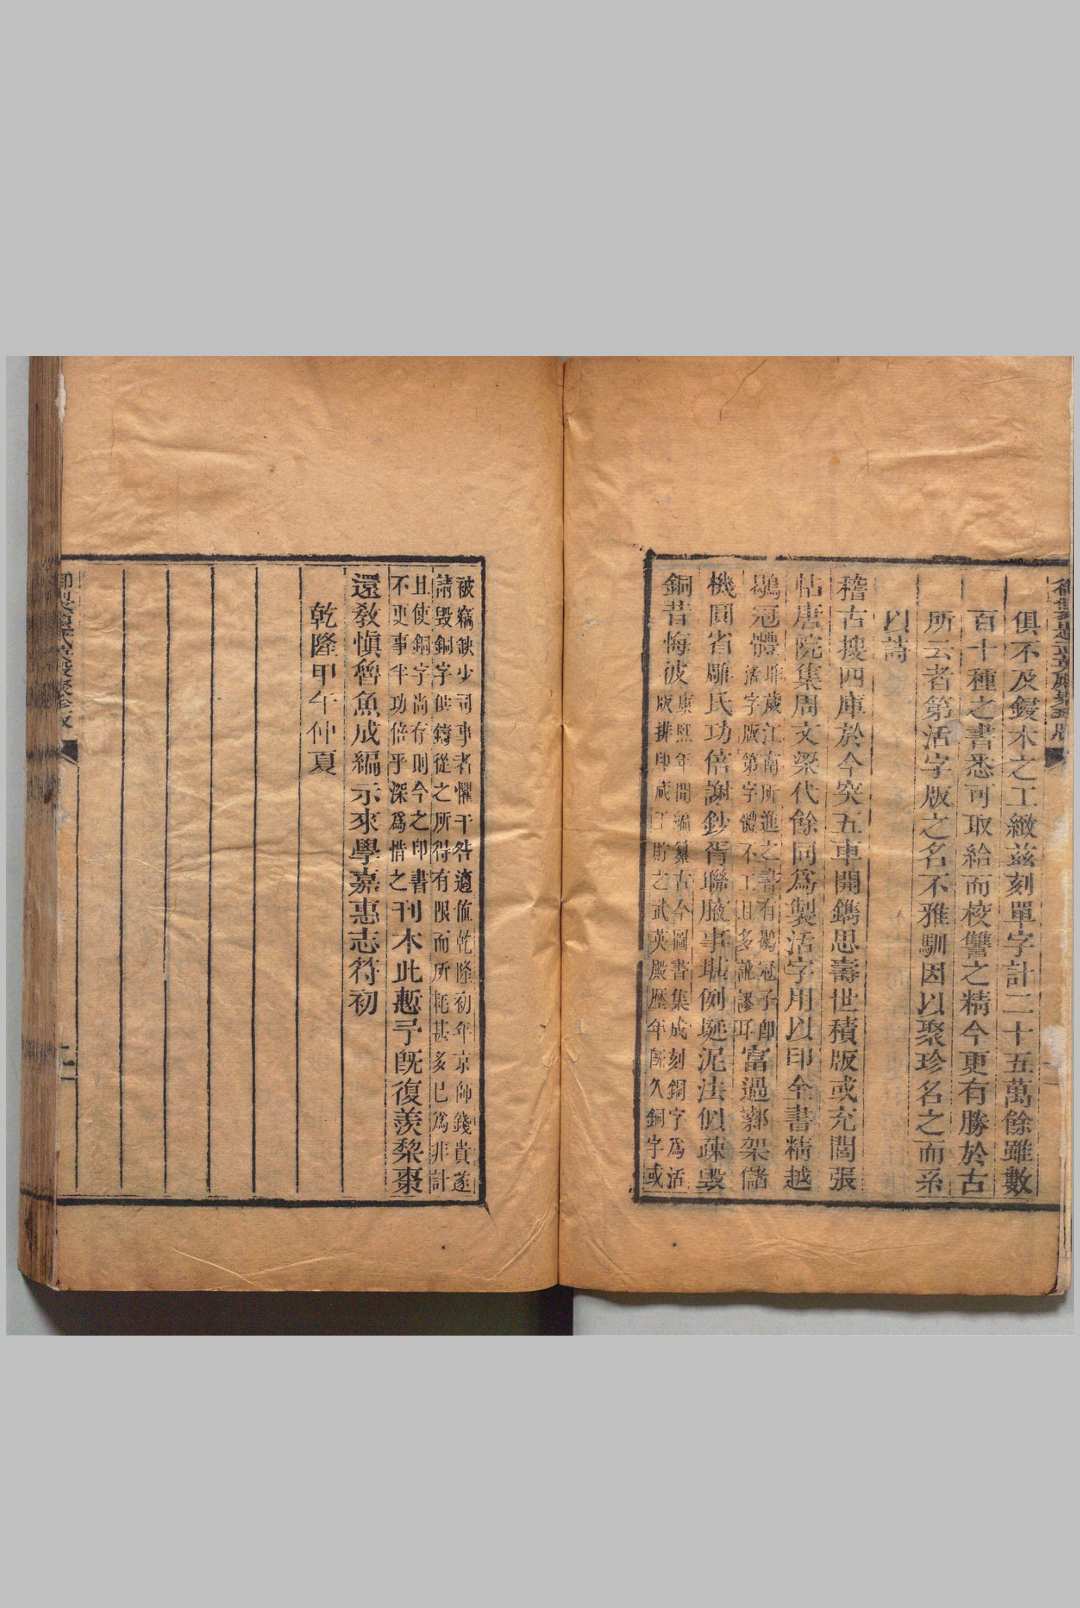 俱不及鋟木之工緻兹刻單字計二十五萬餘雖數
百十種之書悉可取給而校讐之精今更有勝於古
所云者第活字版之名不雅馴因以聚珍名之而系
以詩
稽古搜四庫於今突五車開鐫思壽世積版或充閭張
帖唐院集周文梁代餘同爲製活字用以印全書精越
鶡冠體
活字版第字體不工且多訛謬耳
富過鄴架儲
機圓省雕氏功倍謝鈔胥聯腋事堪例埏泥法似疎毁
銅昔悔彼
康熙年間編纂古今圖書集成刻銅字爲活
版排印蕆工貯之武英殿歷年旣久銅字或
被竊缺少司事者懼干咎適值乾隆初年京師錢貴遂
請毁銅字供鑄從之所得有限而所耗甚多已爲非計
且使銅字尚有則今之印書
不更事半功倍乎深爲惜之
刊木此慙予旣復羨棃棗
還教愼魯魚成編示來學嘉惠志符初
乾隆甲午仲夏